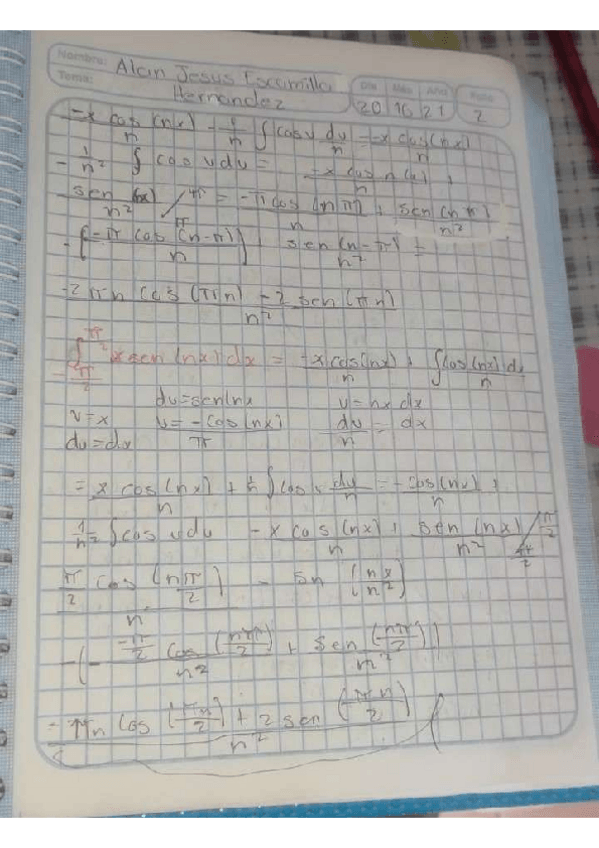 Nombre: Alan Jesus Escamilla
Hernandez
Tema:
Dia Mes Año Folio
20 10 21 2
-x cos(nx)/n - 1/n ∫ cos v dv/n = -x cos(nx)/n
- 1/n² ∫ cos v du = -x cos n(x)/n +
sen (nx)/n² = -π cos (nπ)/n + sen (nπ)/n²
- [-π cos (n-π)/n] sen (n-π)/n² =
-2πn cos (πn) - 2 sen (πn)/n²
∫ x sen (nx) dx = -x cos(nx)/n + ∫ cos(nx) dx/n
dv=sen(nx v = nx dx
v=x v= -cos(nx)/π dv/n = dx
du=dx
= x cos(nx)/n + 1/n ∫ cos v dv/n = -cos(nx)/n +
1/n² ∫ cos v du -x cos (nx)/n + sen (nx)/n² π/2
π/2 cos (nπ/2)/n - Sn
-(- -π/2 cos (nπ/2)/n² + sen (-nπ/2)/n²)
πn cos (πn/2) + 2 sen (πn/2)/n²